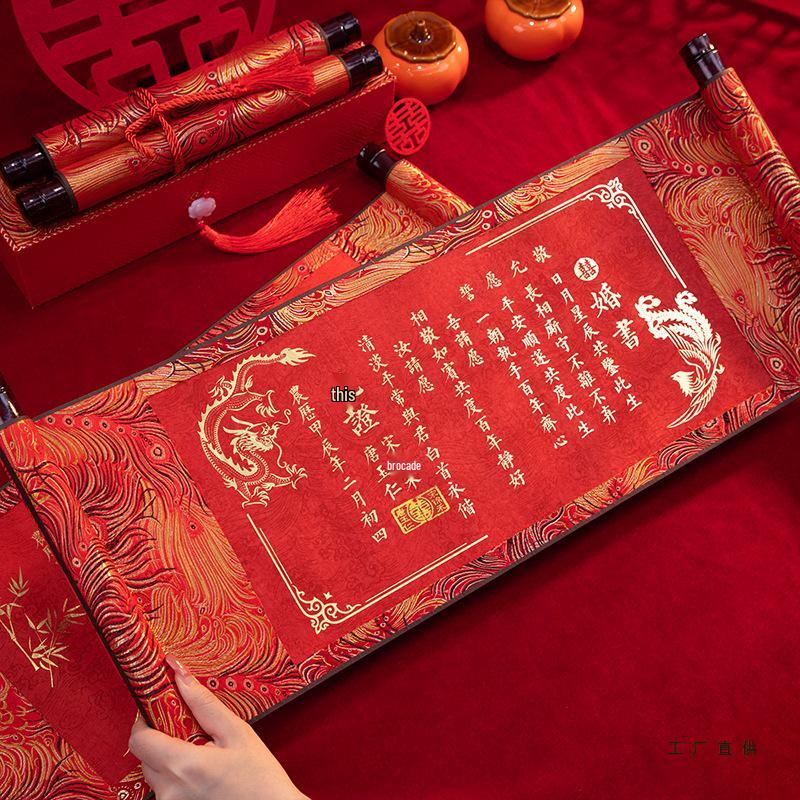 囍
囍
婚書
敬 日月星辰共鑒此生
允 長相廝守不離不弃
愿 平安順遂共度此生
誓 一朝執手百年齊心
吾請愿
相敬如賓共度百年靜好
汝請愿
清淡平常與君白首永偕
this
證
宋
brocade
唐玉仁
農曆甲辰年二月初四
工厂直供